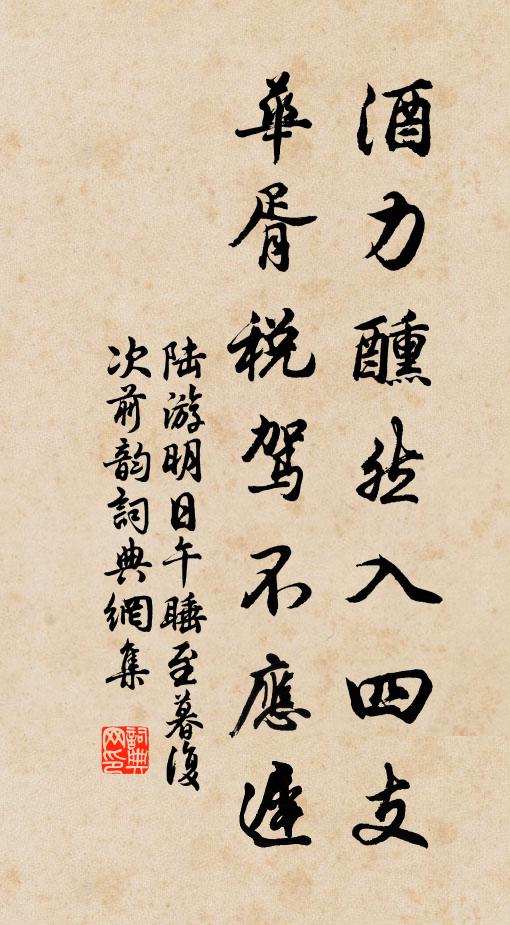 酒力醺然入四支
華胥税駕不應遲
陆游明日午睡至暮復
次前韵詞典網集
詞典网印